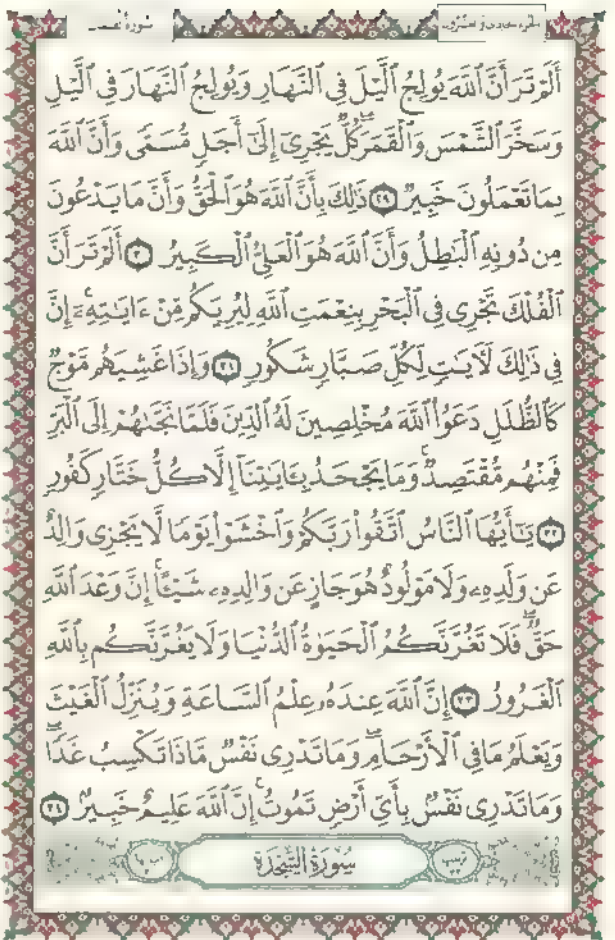 سورة لقمان
الجزء الحادي والعشرون
أَلَمْ تَرَ أَنَّ ٱللَّهَ يُولِجُ ٱلَّيْلَ فِى ٱلنَّهَارِ وَيُولِجُ ٱلنَّهَارَ فِى ٱلَّيْلِ
وَسَخَّرَ ٱلشَّمْسَ وَٱلْقَمَرَ كُلٌّ يَجْرِىٓ إِلَىٰٓ أَجَلٍ مُّسَمًّى وَأَنَّ ٱللَّهَ
بِمَا تَعْمَلُونَ خَبِيرٌ ٢٩ ذَٰلِكَ بِأَنَّ ٱللَّهَ هُوَ ٱلْحَقُّ وَأَنَّ مَا يَدْعُونَ
مِن دُونِهِ ٱلْبَٰطِلُ وَأَنَّ ٱللَّهَ هُوَ ٱلْعَلِىُّ ٱلْكَبِيرُ ٣٠ أَلَمْ تَرَ أَنَّ
ٱلْفُلْكَ تَجْرِى فِى ٱلْبَحْرِ بِنِعْمَتِ ٱللَّهِ لِيُرِيَكُم مِّنْ ءَايَٰتِهِۦٓ إِنَّ
فِى ذَٰلِكَ لَءَايَٰتٍ لِّكُلِّ صَبَّارٍ شَكُورٍ ٣١ وَإِذَا غَشِيَهُم مَّوْجٌ
كَٱلظُّلَلِ دَعَوُا۟ ٱللَّهَ مُخْلِصِينَ لَهُ ٱلدِّينَ فَلَمَّا نَجَّىٰهُمْ إِلَى ٱلْبَرِّ
فَمِنْهُم مُّقْتَصِدٌ وَمَا يَجْحَدُ بِـَٔايَٰتِنَآ إِلَّا كُلُّ خَتَّارٍ كَفُورٍ
٣٢ يَٰٓأَيُّهَا ٱلنَّاسُ ٱتَّقُوا۟ رَبَّكُمْ وَٱخْشَوْا۟ يَوْمًا لَّا يَجْزِى وَالِدٌ
عَن وَلَدِهِۦ وَلَا مَوْلُودٌ هُوَ جَازٍ عَن وَالِدِهِۦ شَيْـًٔا إِنَّ وَعْدَ ٱللَّهِ
حَقٌّ فَلَا تَغُرَّنَّكُمُ ٱلْحَيَوٰةُ ٱلدُّنْيَا وَلَا يَغُرَّنَّكُم بِٱللَّهِ
ٱلْغَرُورُ ٣٣ إِنَّ ٱللَّهَ عِندَهُۥ عِلْمُ ٱلسَّاعَةِ وَيُنَزِّلُ ٱلْغَيْثَ
وَيَعْلَمُ مَا فِى ٱلْأَرْحَامِ وَمَا تَدْرِى نَفْسٌ مَّاذَا تَكْسِبُ غَدًا
وَمَا تَدْرِى نَفْسٌۢ بِأَىِّ أَرْضٍ تَمُوتُ إِنَّ ٱللَّهَ عَلِيمٌ خَبِيرٌ ٣٤
سُورَةُ السَّجْدَةِ